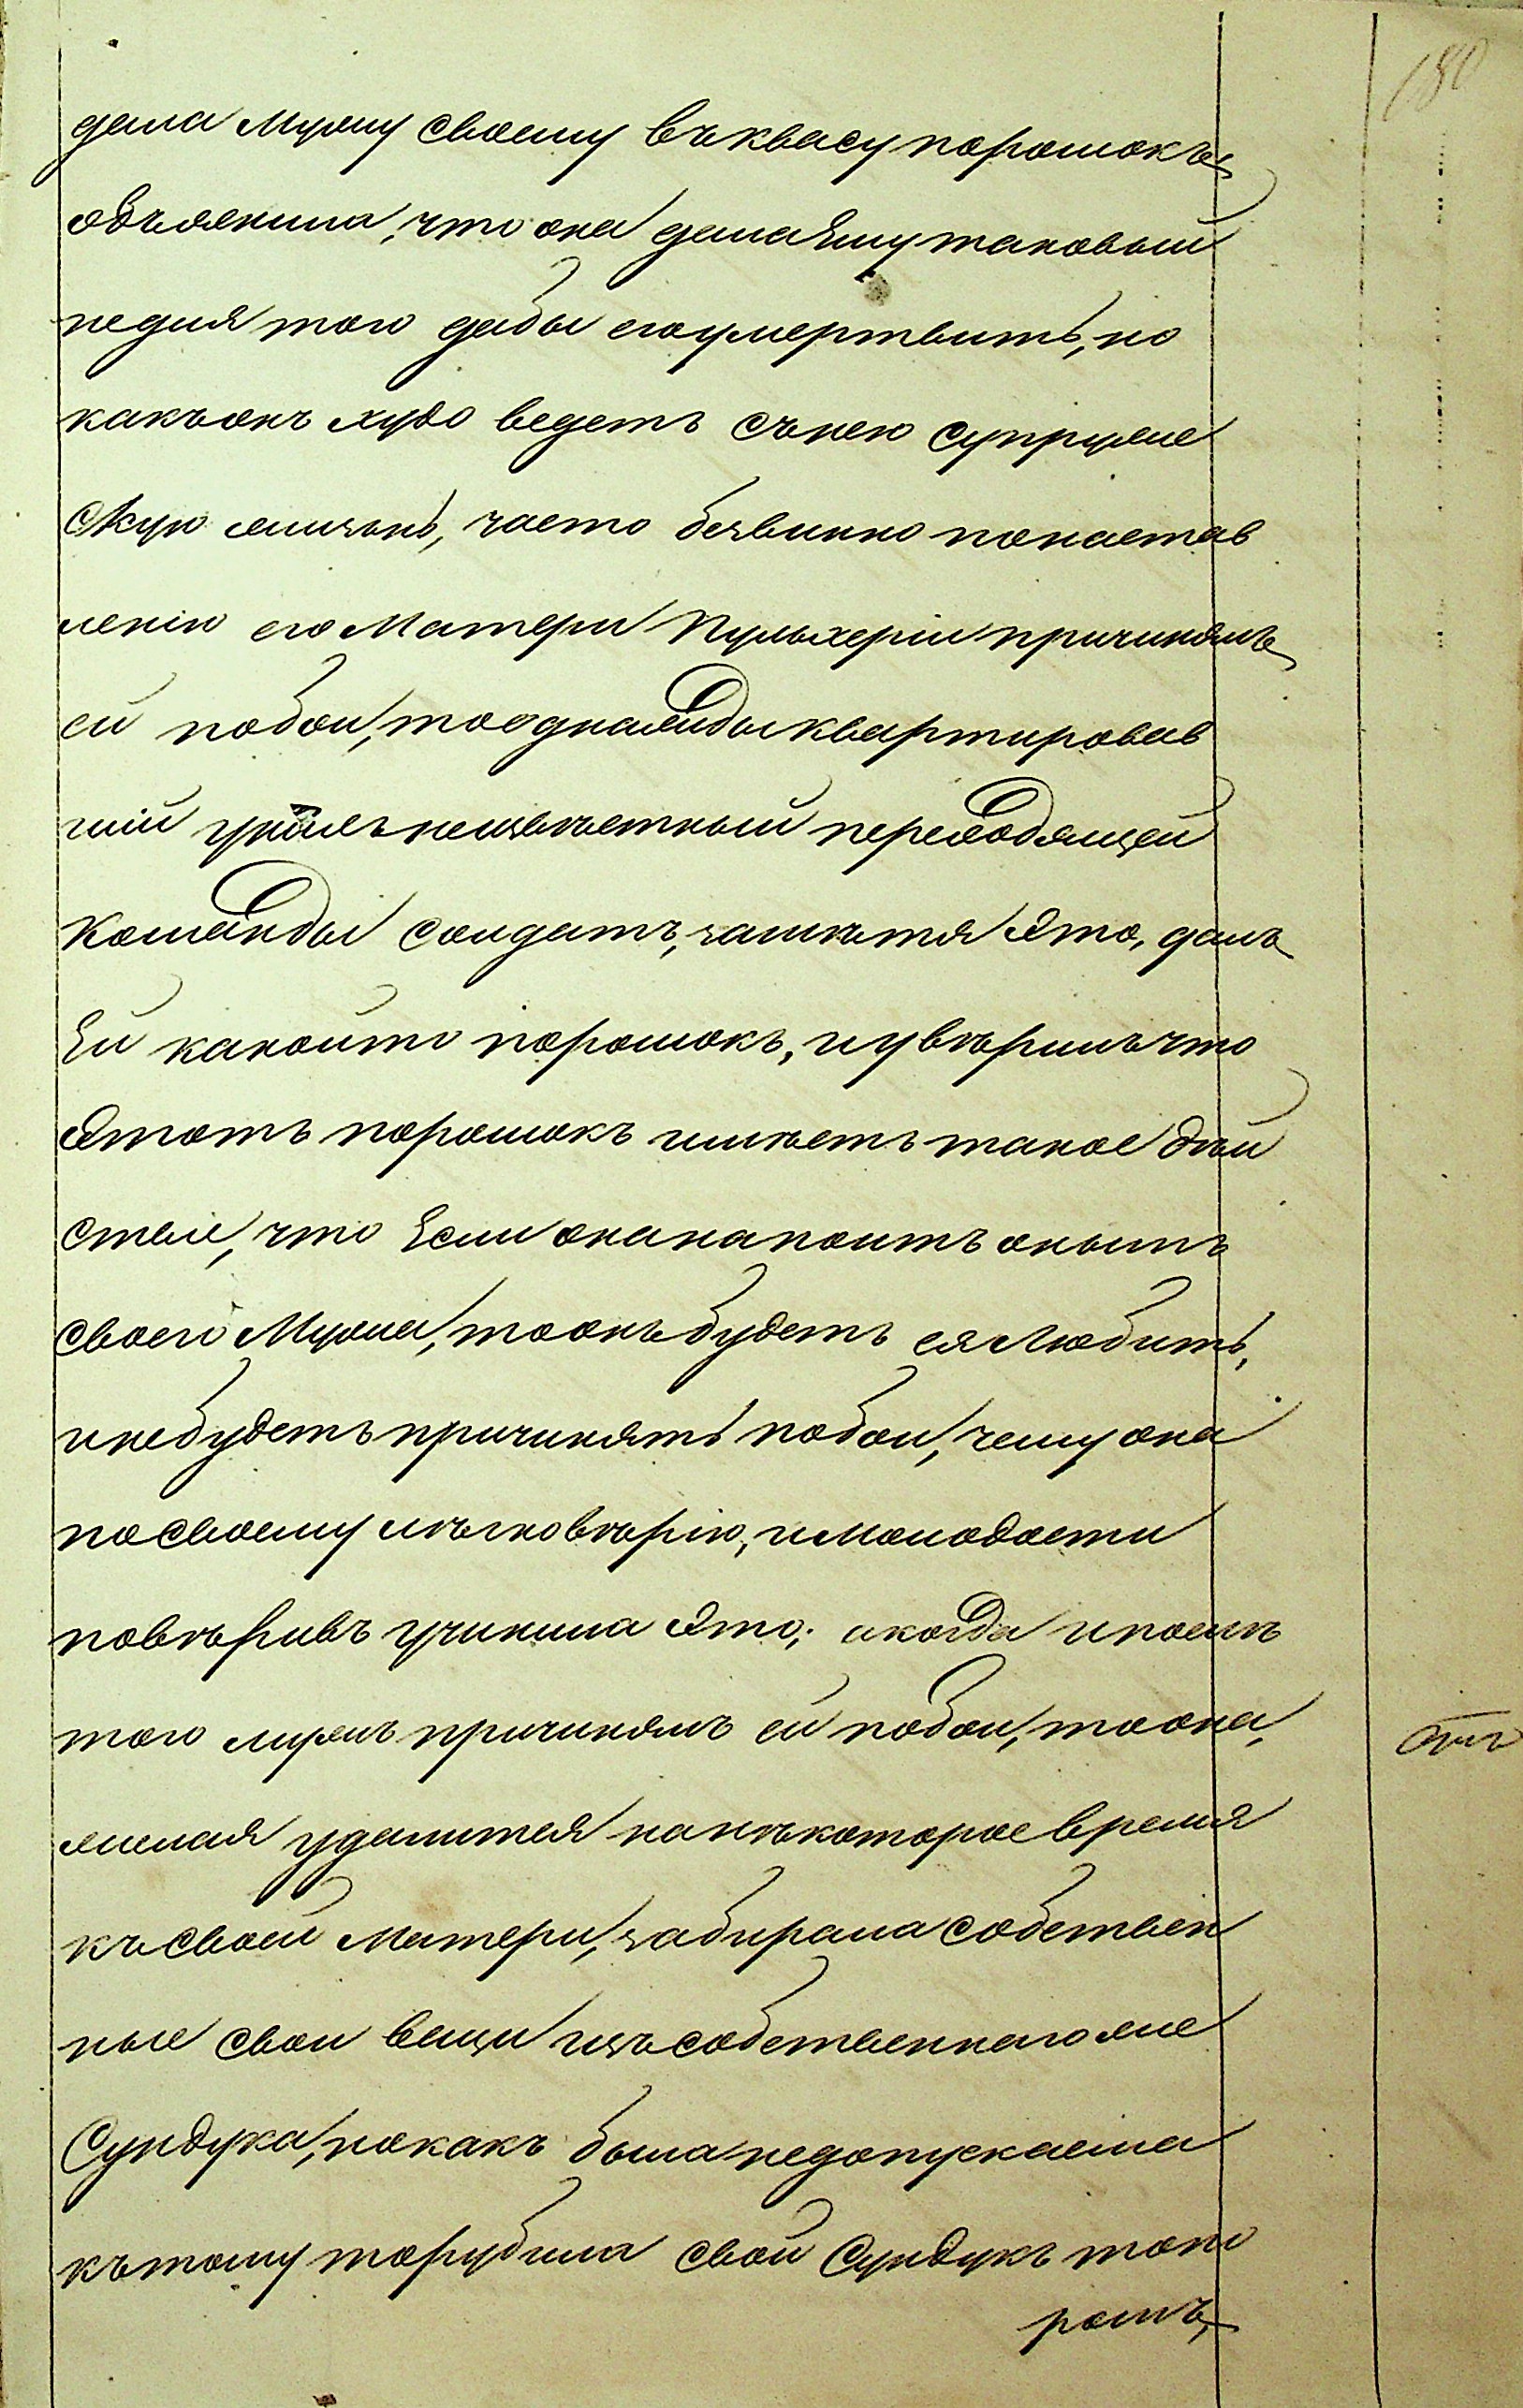 180
дала Мужу своему въ квасу порошокъ
объяснила, что она дала Ему таковый
не для того дабы его умертвить, но
какъ онъ худо ведетъ съ нею супруже
скую жизнь, часто безвинно по настав
ленію его Матери Пульхеріи причинялъ
ей побои, то однажды квартировав
шій у нихъ неизвѣстный переходящей
команды солдатъ, замѣтя Это, далъ
Ей какой то порошокъ, и увѣрилъ что
Этотъ порошокъ имѣетъ такое дѣй
ствіе, что Если она напоитъ онымъ
своего Мужа, то онъ будетъ ея Любить,
и не будетъ причинять побои, чему она
по своему лѣгковѣрію, и молодости
повѣривъ учинила Это; а когда и послѣ
того мужъ причинялъ ей побои, то она,
желая удалится на нѣкоторое время
къ своей Матери, забирала собствен
ные свои вещи изъ собственнаго же
Сундука, но какъ была недопускаема
къ тому то рубила свой Сундукъ топо
ромъ,